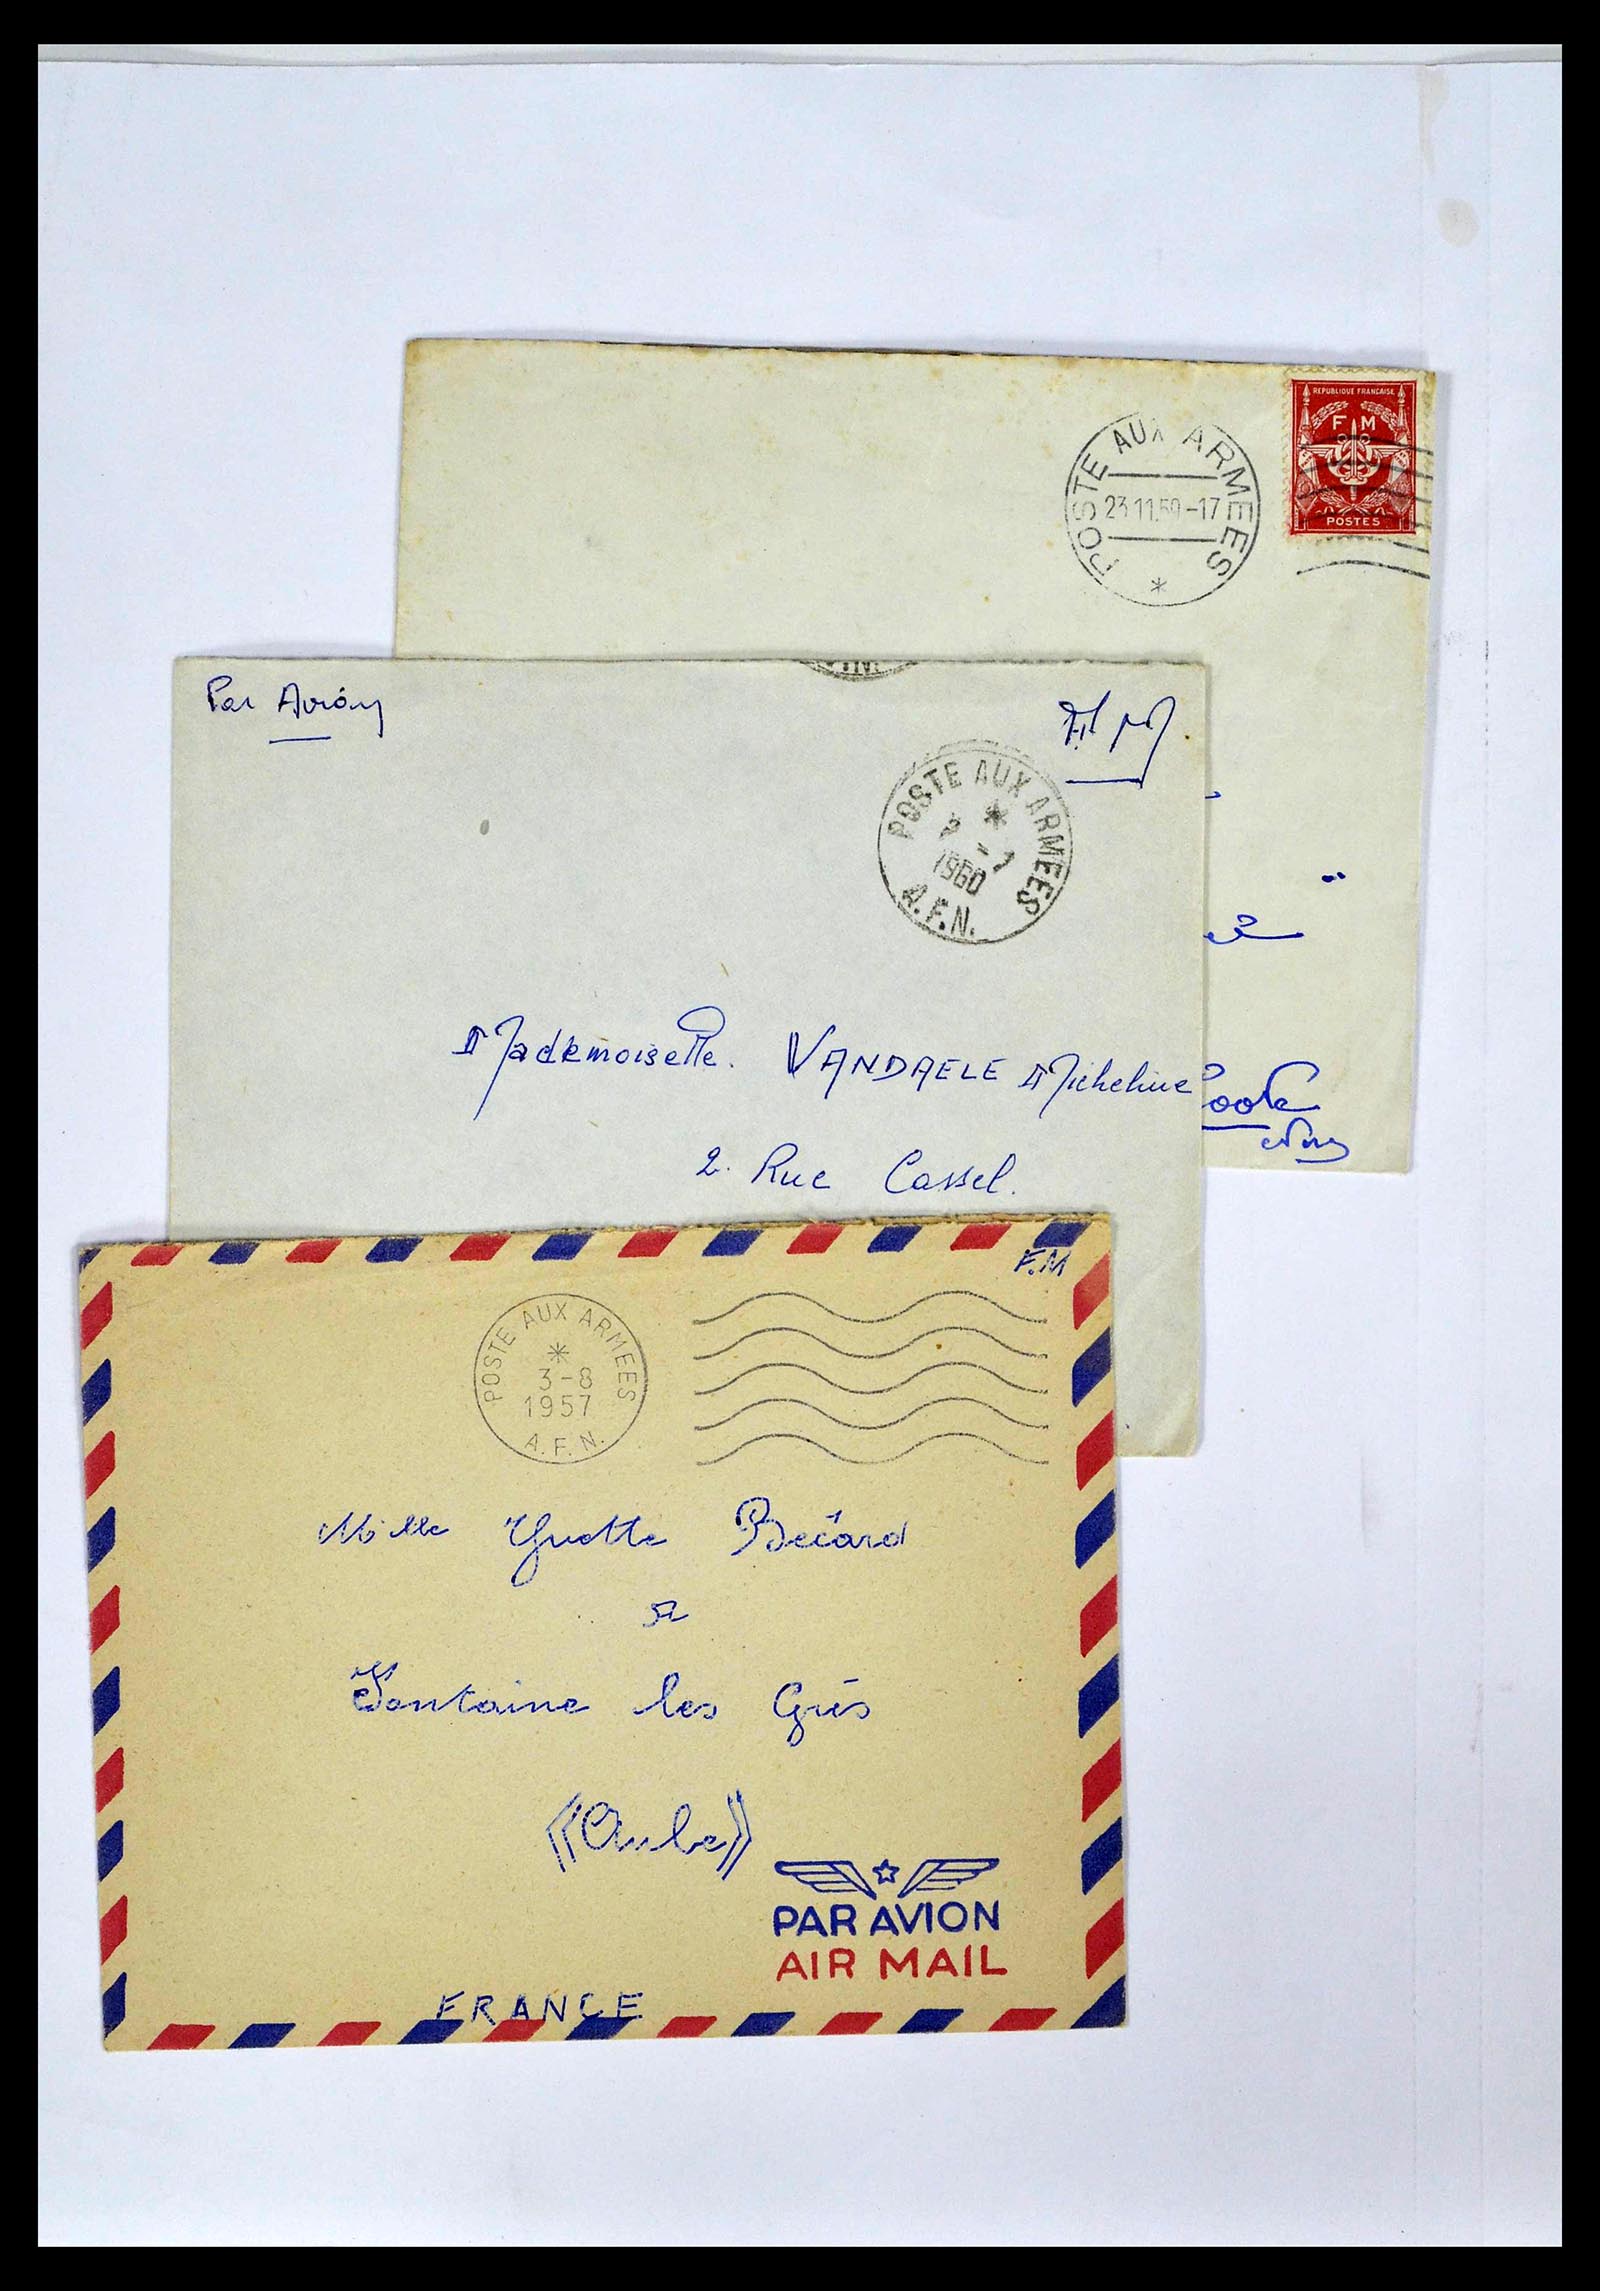 REPUBLIQUE FRANCAISE
F M
POSTES
POSTE AUX ARMEES
23.11.59-17
*
Par Avion
F M
POSTE AUX ARMEES
*
1960
A.F.N.
Mademoiselle. VANDAELE Micheline
2. Rue Cassel.
F.M
POSTE AUX ARMEES
*
3-8
1957
A.F.N.
Melle Yvette Becard
à
Fontaine les Grès
《Aube》
PAR AVION
AIR MAIL
FRANCE